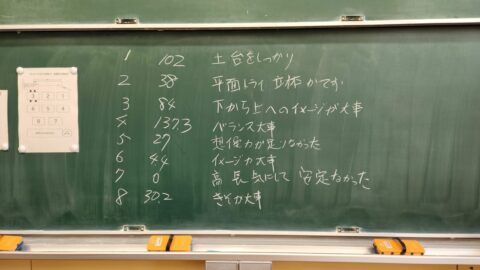 1 102 土台をしっかり
2 38 平面ドライ 立体
3 84 下から上へのイメージが大事
4 137.3 バランス大事
5 27 想像力が足りなかった
6 44 イメージ力大事
7 0 高 気にして 安定なかった
8 30.2 きそ力大事